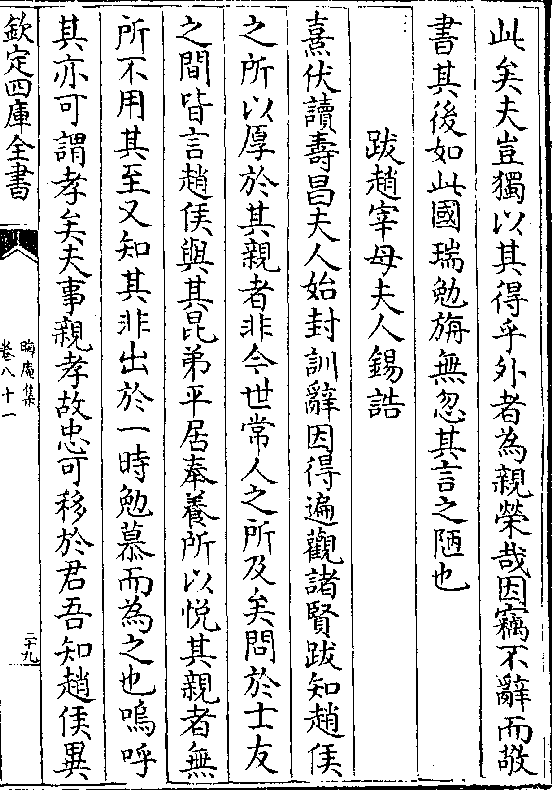 此矣夫豈獨以其得乎外者為親榮哉因竊不辭而敬
書其後如此國瑞勉旃無忽其言之陋也
跋趙宰母夫人錫誥
熹伏讀壽昌夫人始封訓辭因得遍觀諸賢跋知趙侯
之所以厚於其親者非今世常人之所及矣問於士友
之間皆言趙侯與其昆弟平居奉養所以悅其親者無
所不用其至又知其非出於一時勉慕而為之也嗚呼
其亦可謂孝矣夫事親孝故忠可移於君吾知趙侯異
欽定四庫全書
晦庵集
卷八十一
二十九